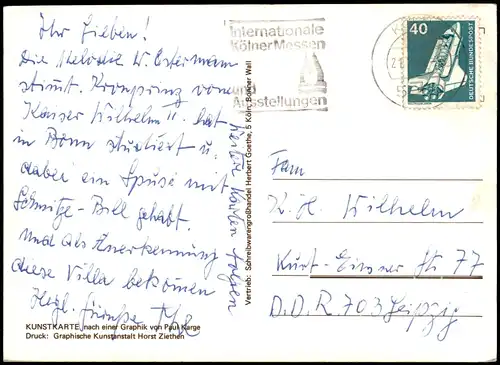 Ihr Lieben!
Die Melodie W. Ostermann
stimmt. Kronprinz vom
Kaiser Wilhelm II. hat
in Bonn studiert u.
dabei ein Spusi mit
Schmitze-Bell gehabt.
und als Anerkennung
diese Villa bekomen
Herzl. Grüße
weitere Karten folgen
KUNSTKARTE, nach einer Graphik von Paul Karge
Druck: Graphische Kunstanstalt Horst Ziethen
Vertrieb: Schreibwarengroßhandel Herbert Goetke, 5 Köln, Bonner Wall
Internationale
Kölner Messen
und
Ausstellungen
40
DEUTSCHE BUNDESPOST
Fam
K. H. Wilhelm
Kurt-Eisner Str 77
D.D.R 703 Leipzig